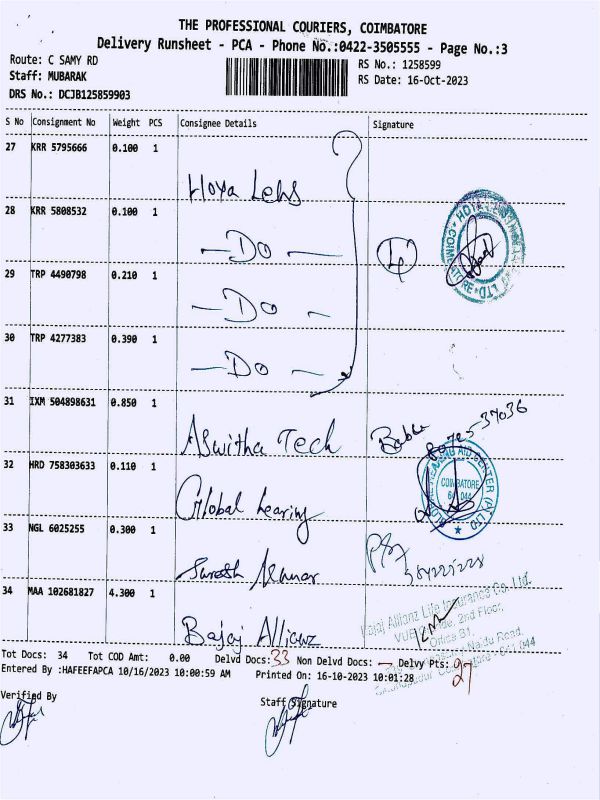 THE PROFESSIONAL COURIERS, COIMBATORE
Delivery Runsheet - PCA - Phone No.:0422-3505555 - Page No.:3
Route: C SAMY RD
RS No.: 1258599
Staff: MUBARAK
RS Date: 16-Oct-2023
DRS No.: DCJB125859903
S No Consignment No Weight PCS Consignee Details Signature
27 KRR 5795666 0.100 1
Hoya Lens
28 KRR 5808532 0.100 1
-DO- 4
HOYA COIMBATORE LTD
29 TRP 4490798 0.210 1
-DO-
30 TRP 4277383 0.390 1
-DO-
31 IXM 504898631 0.850 1
Aswitha Tech
32 HRD 758303633 0.110 1
Global hearing
HEARING AID CENTER (P) LTD
COIMBATORE
641 044
33 NGL 6025255 0.300 1
Suresh Kumar
34 MAA 102681827 4.300 1
Bajaj Allianz
Bajaj Allianz Life Insurance Co. Ltd.
2nd Floor,
Naidu Road,
641 044
Tot Docs: 34 Tot COD Amt: 0.00 Delvd Docs: 33 Non Delvd Docs: - Delvy Pts: 27
Entered By :HAFEEFAPCA 10/16/2023 10:00:59 AM Printed On: 16-10-2023 10:01:28
Verified By Staff Signature